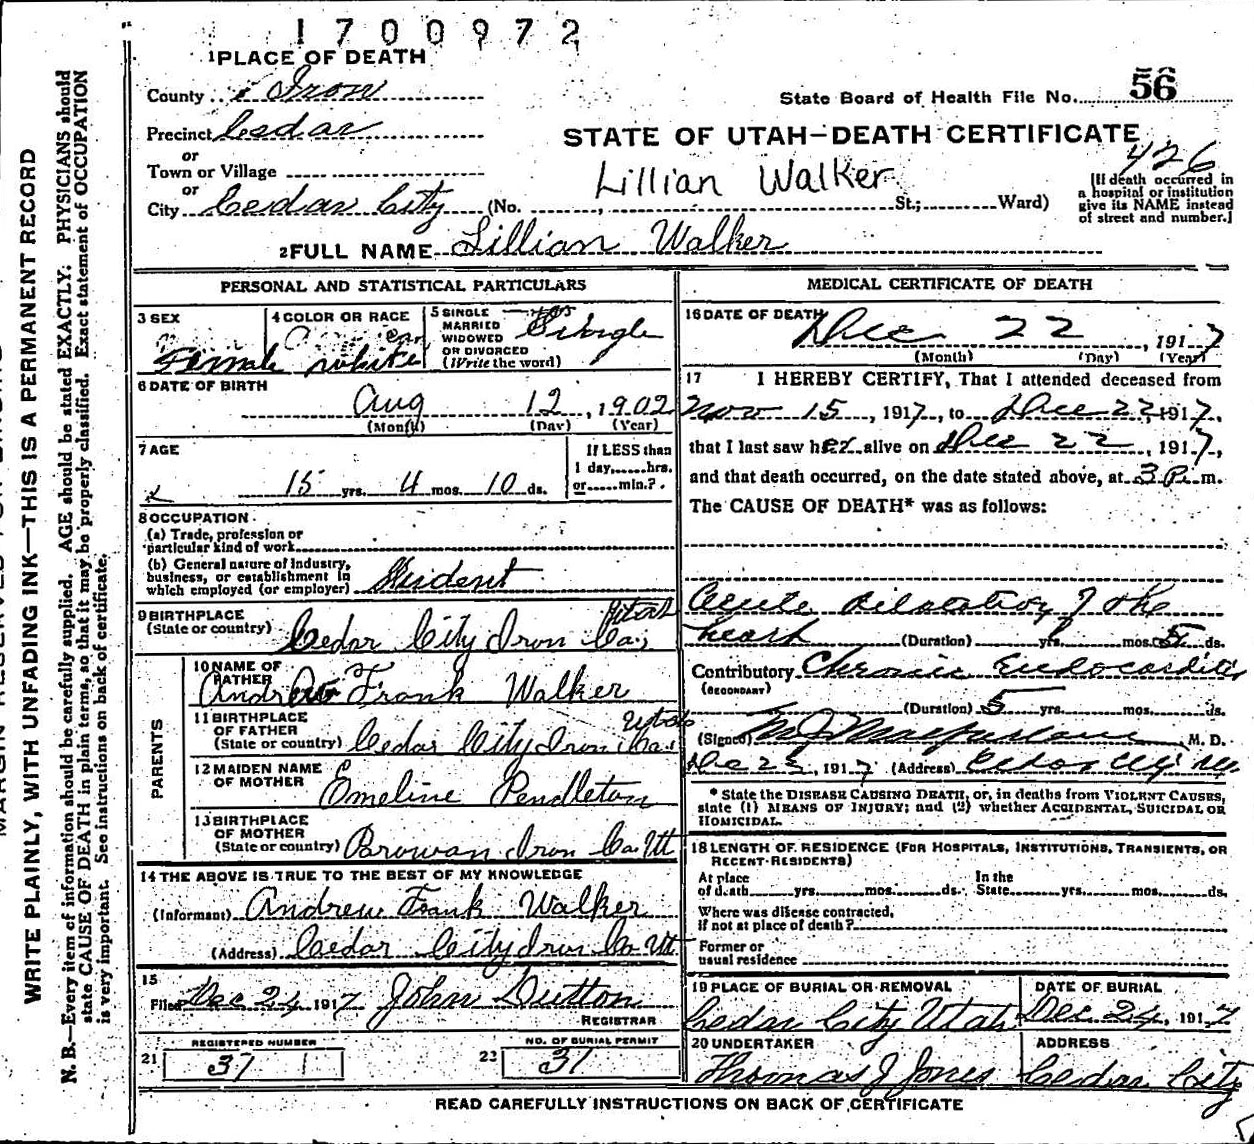 1700972
1 PLACE OF DEATH
County Iron
State Board of Health File No. 56
Precinct Cedar
STATE OF UTAH—DEATH CERTIFICATE
or
Town or Village
426
or
Lillian Walker
[If death occurred in a hospital or institution give its NAME instead of street and number.]
City Cedar City (No. , St.; Ward)
2 FULL NAME Lillian Walker
PERSONAL AND STATISTICAL PARTICULARS
3 SEX
Female
4 COLOR OR RACE
white
5 SINGLE
MARRIED
WIDOWED
OR DIVORCED
(Write the word)
Single
6 DATE OF BIRTH
Aug 12, 1902
(Month) (Day) (Year)
7 AGE
15 yrs. 4 mos. 10 ds.
If LESS than
1 day,......hrs.
or......min.?
8 OCCUPATION
(a) Trade, profession or
particular kind of work
(b) General nature of industry,
business, or establishment in
which employed (or employer) Student
9 BIRTHPLACE
(State or country) Cedar City Iron Co, Utah
PARENTS
10 NAME OF
FATHER
Andrew Frank Walker
11 BIRTHPLACE
OF FATHER
(State or country) Cedar City Iron Co. Utah
12 MAIDEN NAME
OF MOTHER
Emeline Pendleton
13 BIRTHPLACE
OF MOTHER
(State or country) Parowan Iron Co. Ut
14 THE ABOVE IS TRUE TO THE BEST OF MY KNOWLEDGE
(Informant) Andrew Frank Walker
(Address) Cedar City Iron Co Ut
15
Filed Dec 24 1917 John Dutton
REGISTRAR
21 REGISTERED NUMBER
37
23 NO. OF BURIAL PERMIT
31
MEDICAL CERTIFICATE OF DEATH
16 DATE OF DEATH
Dec 22, 1917
(Month) (Day) (Year)
17 I HEREBY CERTIFY, That I attended deceased from
Nov 15, 1917, to Dec 22, 1917,
that I last saw her alive on Dec 22, 1917,
and that death occurred, on the date stated above, at 3 P. m.
The CAUSE OF DEATH* was as follows:
Acute dilatation of the
heart (Duration) yrs. mos. 5 ds.
Contributory Chronic Endocarditis
(SECONDARY)
(Duration) 5 yrs. mos. ds.
(Signed) M J Macfarlane M. D.
Dec 23, 1917 (Address) Cedar City
* State the DISEASE CAUSING DEATH, or, in deaths from VIOLENT CAUSES,
state (1) MEANS OF INJURY; and (2) whether ACCIDENTAL, SUICIDAL OR
HOMICIDAL.
18 LENGTH OF RESIDENCE (FOR HOSPITALS, INSTITUTIONS, TRANSIENTS, OR
RECENT RESIDENTS)
At place In the
of death......yrs......mos......ds. State......yrs......mos......ds.
Where was disease contracted,
if not at place of death?
Former or
usual residence
19 PLACE OF BURIAL OR REMOVAL
Cedar City Utah
DATE OF BURIAL
Dec 24, 1917
20 UNDERTAKER
Thomas J Jones
ADDRESS
Cedar City
READ CAREFULLY INSTRUCTIONS ON BACK OF CERTIFICATE
WRITE PLAINLY, WITH UNFADING INK—THIS IS A PERMANENT RECORD
N. B.—Every item of information should be carefully supplied. AGE should be stated EXACTLY. PHYSICIANS should
state CAUSE OF DEATH in plain terms, so that it may be properly classified. Exact statement of OCCUPATION
is very important. See instructions on back of certificate.